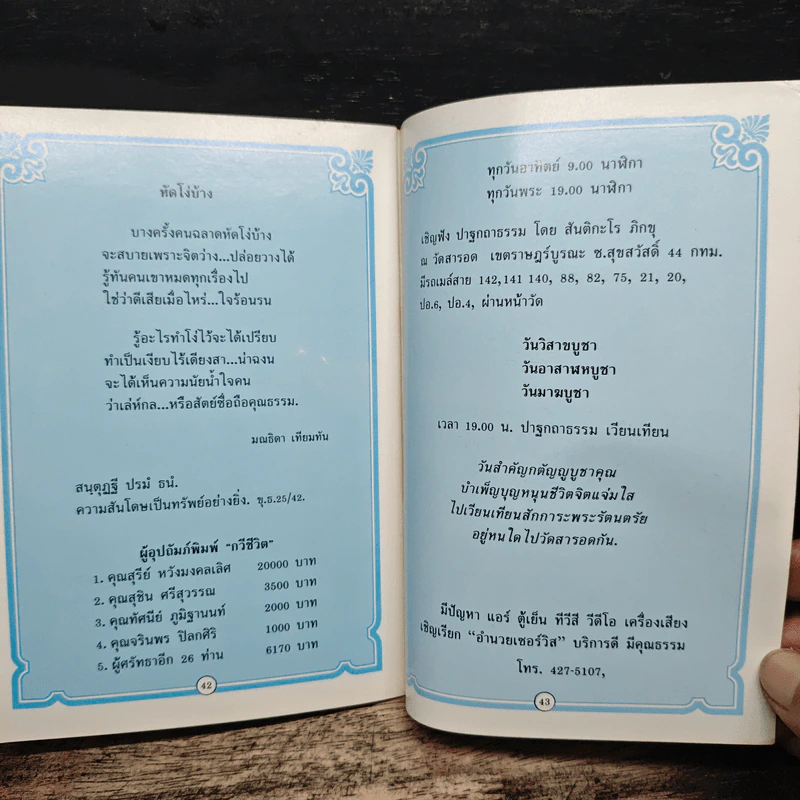 หัดโง่บ้าง
บางครั้งคนฉลาดหัดโง่บ้าง
จะสบายเพราะจิตว่าง...ปล่อยวางได้
รู้ทันคนเขาหมดทุกเรื่องไป
ใช่ว่าดีเสียเมื่อไหร่...ใจร้อนรน
รู้อะไรทำโง่ไว้จะได้เปรียบ
ทำเป็นเงียบไร้เดียงสา...น่าฉงน
จะได้เห็นความนัยน้ำใจคน
ว่าเล่ห์กล...หรือสัตย์ซื่อถือคุณธรรม.
มณธิดา เทียมทัน
สนฺตุฏฺฐี ปรมํ ธนํ.
ความสันโดษเป็นทรัพย์อย่างยิ่ง. ขุ.ธ.25/42.
ผู้อุปถัมภ์พิมพ์ "กวีชีวิต"
1. คุณสุรีย์ หวังมงคลเลิศ 20000 บาท
2. คุณสุชิน ศรีสุวรรณ 3500 บาท
3. คุณทัศนีย์ ภูมิฐานนท์ 2000 บาท
4. คุณจรินพร ปิลกศิริ 1000 บาท
5. ผู้ศรัทธาอีก 26 ท่าน 6170 บาท
42
ทุกวันอาทิตย์ 9.00 นาฬิกา
ทุกวันพระ 19.00 นาฬิกา
เชิญฟัง ปาฐกถาธรรม โดย สันติกะโร ภิกขุ
ณ วัดสารอด เขตราษฎร์บูรณะ ซ.สุขสวัสดิ์ 44 กทม.
มีรถเมล์สาย 142,141 140, 88, 82, 75, 21, 20,
ปอ.6, ปอ.4, ผ่านหน้าวัด
วันวิสาขบูชา
วันอาสาฬหบูชา
วันมาฆบูชา
เวลา 19.00 น. ปาฐกถาธรรม เวียนเทียน
วันสำคัญกตัญญูบูชาคุณ
บำเพ็ญบุญหนุนชีวิตจิตแจ่มใส
ไปเวียนเทียนสักการะพระรัตนตรัย
อยู่หนใดไปวัดสารอดกัน.
มีปัญหา แอร์ ตู้เย็น ทีวีสี วีดีโอ เครื่องเสียง
เชิญเรียก "อำนวยเซอร์วิส" บริการดี มีคุณธรรม
โทร. 427-5107,
43